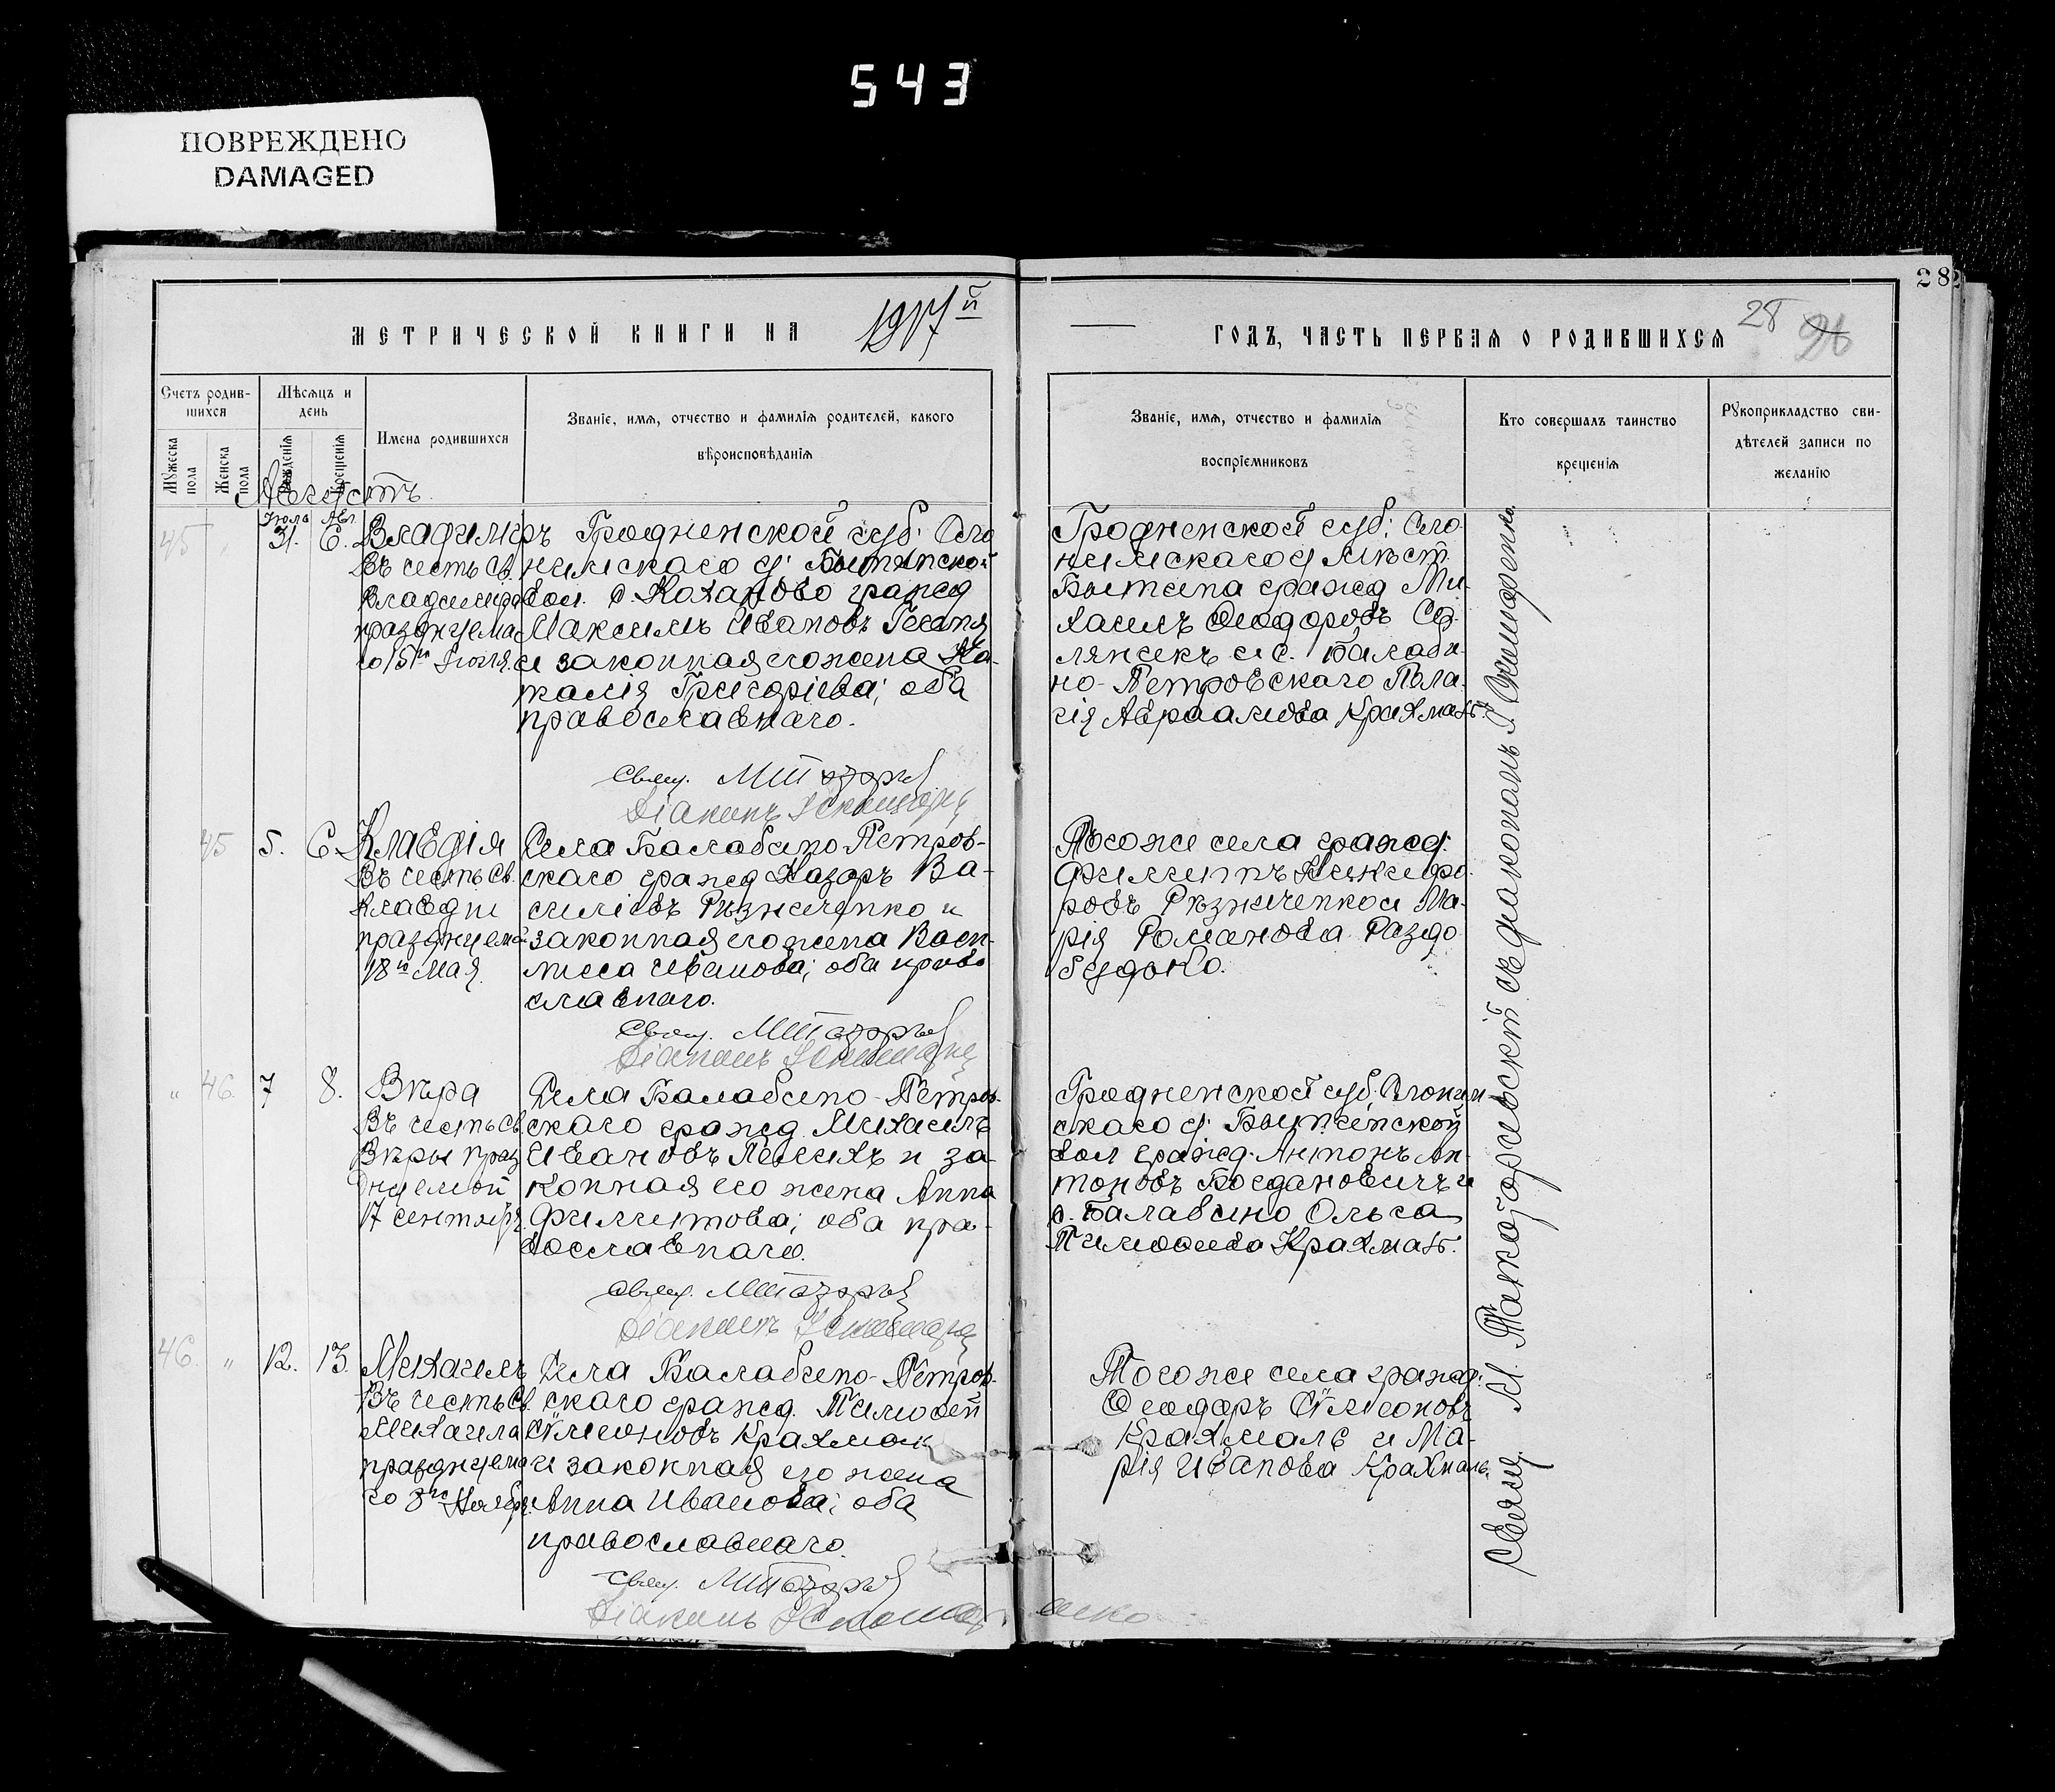 543
ПОВРЕЖДЕНО
DAMAGED
282
МЕТРИЧЕСКОЙ КНИГИ НА 1917й
ГОДЪ, ЧАСТЬ ПЕРВАЯ О РОДИВШИХСЯ
28 26
Счетъ родив-
шихся
Мужеска пола
Женска пола
Мѣсяцъ и
день
рожденія
крещенія
Имена родившихся
Званіе, имя, отчество и фамилія родителей, какого
вѣроисповѣданія
Званіе, имя, отчество и фамилія
воспріемниковъ
Кто совершалъ таинство
крещенія
Рукоприкладство сви-
дѣтелей записи по
желанію
Августъ
45 "
Іюля 31.
Авг. 6.
Владиміръ
Въ честь св.
Владиміра
празднуема
го 15го Іюля.
Гродненской губ. Сло
нимскаго у. Бытенской
вол. д. Коханово гражд
Максимъ Ивановъ
и законная его жена На-
талія Григоріева; оба
православнаго.
Свящ.
Діаконъ
Гродненской губ. Сло
нимскаго у мѣст.
Бытеня гражд Ми-
хаилъ Ѳеодоровъ
и с. Балаби-
но-Петровскаго Пела-
гія Авраамова Крахмаль.
45 5. 6.
Клавдія
Въ честь св.
Клавдіи
празднуемой
18го Мая.
Села Балабино-Петров-
скаго гражд Назаръ Ва-
силіевъ Рѣзниченко и
законная его жена Васи-
лиса Иванова; оба право
славнаго.
Свящ.
Діаконъ
Тогоже села гражд.
Филиппъ Никифо-
ровъ Рѣзниченко и Ма-
рія Романова Раздо
будько.
" 46. 7 8.
Вѣра
Въ честь св.
Вѣры празд
нуемой
17 сентября.
Села Балабино-Петров-
скаго гражд. Михаилъ
Ивановъ и за-
конная его жена Анна
Филиппова; оба пра-
вославнаго.
Свящ.
Діаконъ
Гродненской губ. Слоним-
скаго у. Бытенской
вол гражд. Антонъ Ан-
тоновъ Богдановичъ и
с. Балабино Ольга
Тимоѳеева Крахмаль.
46. " 12. 13.
Михаилъ
Въ честь св.
Михаила
празднуема
го 8го Ноября.
Села Балабино-Петров-
скаго гражд. Тимоѳей
Сѵмеоновъ Крахмаль
и законная его жена
Анна Иванова; оба
православнаго.
Свящ.
Діаконъ
Тогоже села гражд.
Ѳеодоръ Сѵмеоновъ
Крахмаль и Ма-
рія Иванова Крахмаль.
Свящ. М. съ діакономъ